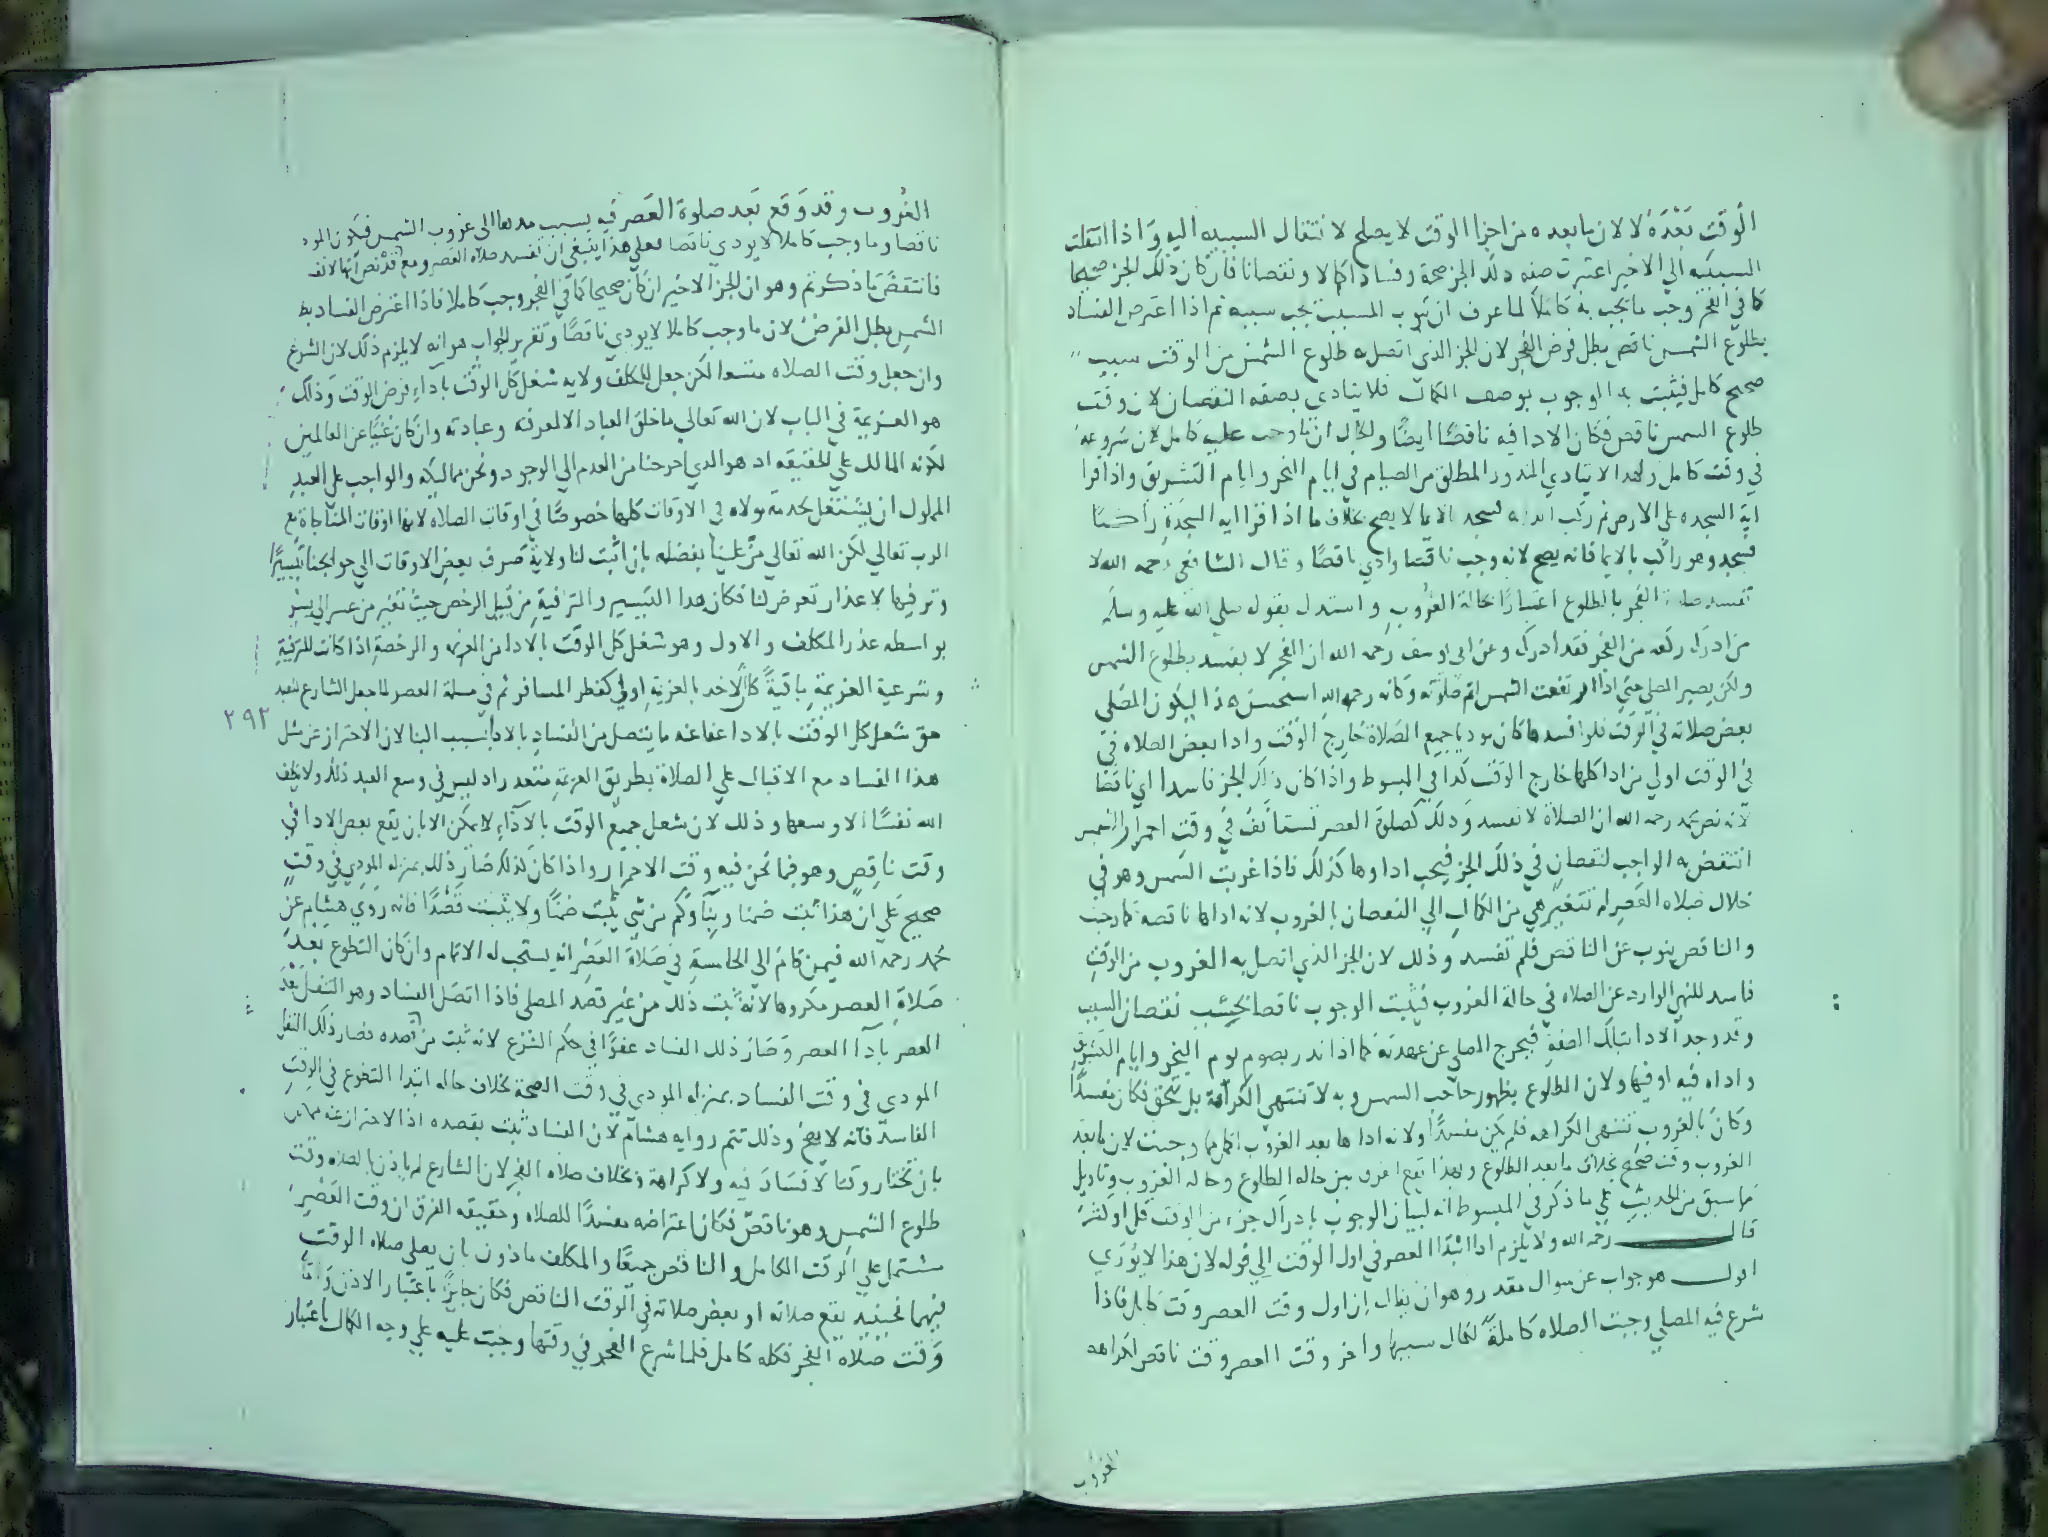 الوقت بعده لا لان ما بعده من اجزا الوقت لا يصلح لانتقال السببيه اليه واذا انتقلت
السببيه الي الاخير اعتبرت صفه ذلك الجز صحة وفسادا كمالا ونقصانا فان كان ذلك الجز صحيحا
كما في الفجر وجب ما يجب به كاملا لما عرف ان ثبوت المسبب بحسب سببه ثم اذا اعترض الفساد
بطلوع الشمس ناقص بطل فرض الفجر لان الجز الذي اتصل به طلوع الشمس من الوقت سبب
صحيح كامل فيثبت به الوجوب بوصف الكمال فلا يتادي بصفه النقصان لان وقت
طلوع الشمس ناقص فكان الادا فيه ناقصا ايضا والحال انها وجب عليه كاملا لان شروعه
في وقت كامل ولهذا لا يتادي المنذور المطلق من الصيام في ايام النحر وايام التشريق واذا قرا
اية السجده علي الارض ثم ركب الدابه فسجد بالايما لا يصح بخلاف ما اذا قرا ايه السجدة راكبا
فسجد وهو راكب بالايما فانه يصح لانه وجب ناقصا وادي ناقصا وقال الشافعي رحمه الله لا
تفسد صلاة الفجر بالطلوع اعتبارا بحالة الغروب واستدل بقوله صلي الله عليه وسلم
من ادرك ركعه من الفجر فقد ادرك وعن ابي يوسف رحمه الله ان الفجر لا يفسد بطلوع الشمس
ولكن يصير المصلي حتي اذا ارتفعت الشمس اتم صلوته وكانه رحمه الله استحسن هذا ليكون المصلي
بعض صلاته في الوقت فلو افسدها كان موديا جميع الصلاة خارج الوقت وادا بعض الصلاه في
في الوقت اولي من ادا كلها خارج الوقت كذا في المبسوط واذا كان ذلك الجز فاسدا اي ناقصا
لانه نص محمد رحمه الله ان الصلاة لا تفسد وذلك كصلوة العصر تستانف في وقت احمرار الشمس
انتقض به الواجب لنقصان في ذلك الجز فيجب اداوها كذلك فاذا غربت الشمس وهو في
خلال صلاه العصر لم تتغير هي من الكمال الي النقصان بالغروب لانه اداها ناقصه كما وجبت
والناقص ينوب عن الناقص فلم تفسد وذلك لان الجز الذي اتصل به الغروب من الوقت
فاسد للنهي الوارد عن الصلاه في حالة الغروب فيثبت الوجوب ناقصا بحسب نقصان السبب
وقد وجد الادا بتلك الصفة فيخرج المصلي عن عهدته كما اذا نذر بصوم يوم النحر وايام التشريق
واداه فيه او فيها ولان الطلوع بظهور حاجب الشمس وبه لا تنتهي الكراهة بل تتحقق فكان مفسدا
وكان بالغروب تنتهي الكراهه فلم يكن مفسدا ولانه اداها بعد الغروب اكمل مما وجبت لان ما بعد
الغروب وقت صحيح بخلاف ما بعد الطلوع وبهذا يقع الفرق بين حاله الطلوع وحاله الغروب وتاويل
ما سبق من الحديث علي ما ذكر في المبسوط انه لبيان الوجوب بادراك جزء من الوقت قل او كثر
قال رحمه الله ولا يلزم اذا ابتدا العصر في اول الوقت الي قوله لان هذا لا يودي
اقول هو جواب عن سوال مقدر وهو ان يقال ان اول وقت العصر وقت كامل فاذا
شرع فيه المصلي وجبت الصلاه كاملة لكمال سببها واخر وقت العصر وقت ناقص لكراهه
الغروب
الغروب وقد وقع بعد صلوة العصر فيه بسبب مدها الي غروب الشمس فيكون المودي
ناقصا وما وجب كاملا لا يودي ناقصا فعلي هذا ينبغي ان تفسد صلاه العصر ومع قد نص انها لا تفسد
فانتقض ما ذكرتم وهو ان الجز الاخير ان كان صحيحا كما في الفجر وجب كاملا فاذا اعترض الفساد بطلوع
الشمس بطل الفرض لان ما وجب كاملا لا يودي ناقصا وتقرير الجواب هو انه لا يلزم ذلك لان الشرع
وان جعل وقت الصلاه متسعا لكن جعل للمكلف ولايه شغل كل الوقت باداء فرض الوقت وذلك
هو العزيمة في الباب لان الله تعالي ما خلق العباد الا لمعرفته وعبادته وان كان غنيا عن العالمين
لكونه المالك علي الحقيقه اذ هو الذي اخرجنا من العدم الي الوجود ونحن مماليكه والواجب علي العبد
المملوك ان يشتغل بخدمة مولاه في الاوقات كلها خصوصا في اوقات الصلاه لانها اوقات المناجاة مع
الرب تعالي لكن الله تعالي من علينا بفضله بان اثبت لنا ولاية صرف بعض الاوقات الي حوايجنا تيسيرا
وترفيها لاعذار تعرض لنا فكان هذا التيسير والترفية من قبيل الرخص حيث تغير من عسر الي يسر
بواسطه عذر المكلف والاول وهو شغل كل الوقت بالادا من العزيمه والرخصة اذا كانت للترفية
وشرعية العزيمة باقية كان الاخذ بالعزيمة اولي كفطر المسافر ثم في مسلة العصر لما جعل الشارع للعبد
حق شغل كل الوقت بالادا عفا عنه ما يتصل من الفساد بالادا بسبب البنا لان الاحتراز عن مثل
هذا الفساد مع الاقبال علي الصلاة بطريق العزيمة متعذر اذ ليس في وسع العبد ذلك ولا يكلف
الله نفسا الا وسعها وذلك لان شغل جميع الوقت بالاداء لا يمكن الا بان يقع بعض الادا في
وقت ناقص وهو فيما نحن فيه وقت الاحمرار واذا كان كذلك صار ذلك بمنزله المودي في وقت
صحيح علي ان هذا ثبت ضمنا وبناء وكم من شي يثبت ضمنا ولا يثبت قصدا فانه روي هشام عن
محمد رحمه الله فيمن قام الي الخامسة في صلاة العصر انه يستحب له الاتمام وان كان التطوع بعد
صلاة العصر مكروها لانه ثبت ذلك من غير قصد المصلي فاذا اتصل الفساد وهو التنفل بعد
العصر بادا العصر وصار ذلك الفساد عفوا في حكم الشرع لانه ثبت من قصده فصار ذلك النفل
المودي في وقت الفساد بمنزله المودي في وقت الصحة بخلاف حاله ابتدا التطوع في الوقت
الفاسد فانه لا يصح وذلك تتم روايه هشام لان الفساد ثبت بقصده اذ الاحتراز عنه ممكن
بان يختار وقتا لا فساد فيه ولا كراهة وبخلاف صلاه الفجر لان الشارع لم ياذن بالصلاه وقت
طلوع الشمس وهو ناقص فكان اعتراضه مفسدا للصلاه وحقيقه الفرق ان وقت العصر
مشتمل علي الوقت الكامل والناقص جميعا والمكلف ماذون بان يصلي صلاه الوقت
فيهما فحينيذ يقع صلاته او بعض صلاته في الوقت الناقص فكان جايزا باعتبار الاذن واما
وقت صلاة الفجر فكله كامل فلما شرع الفجر في وقتها وجبت عليه علي وجه الكمال باعتبار
٢٩٢